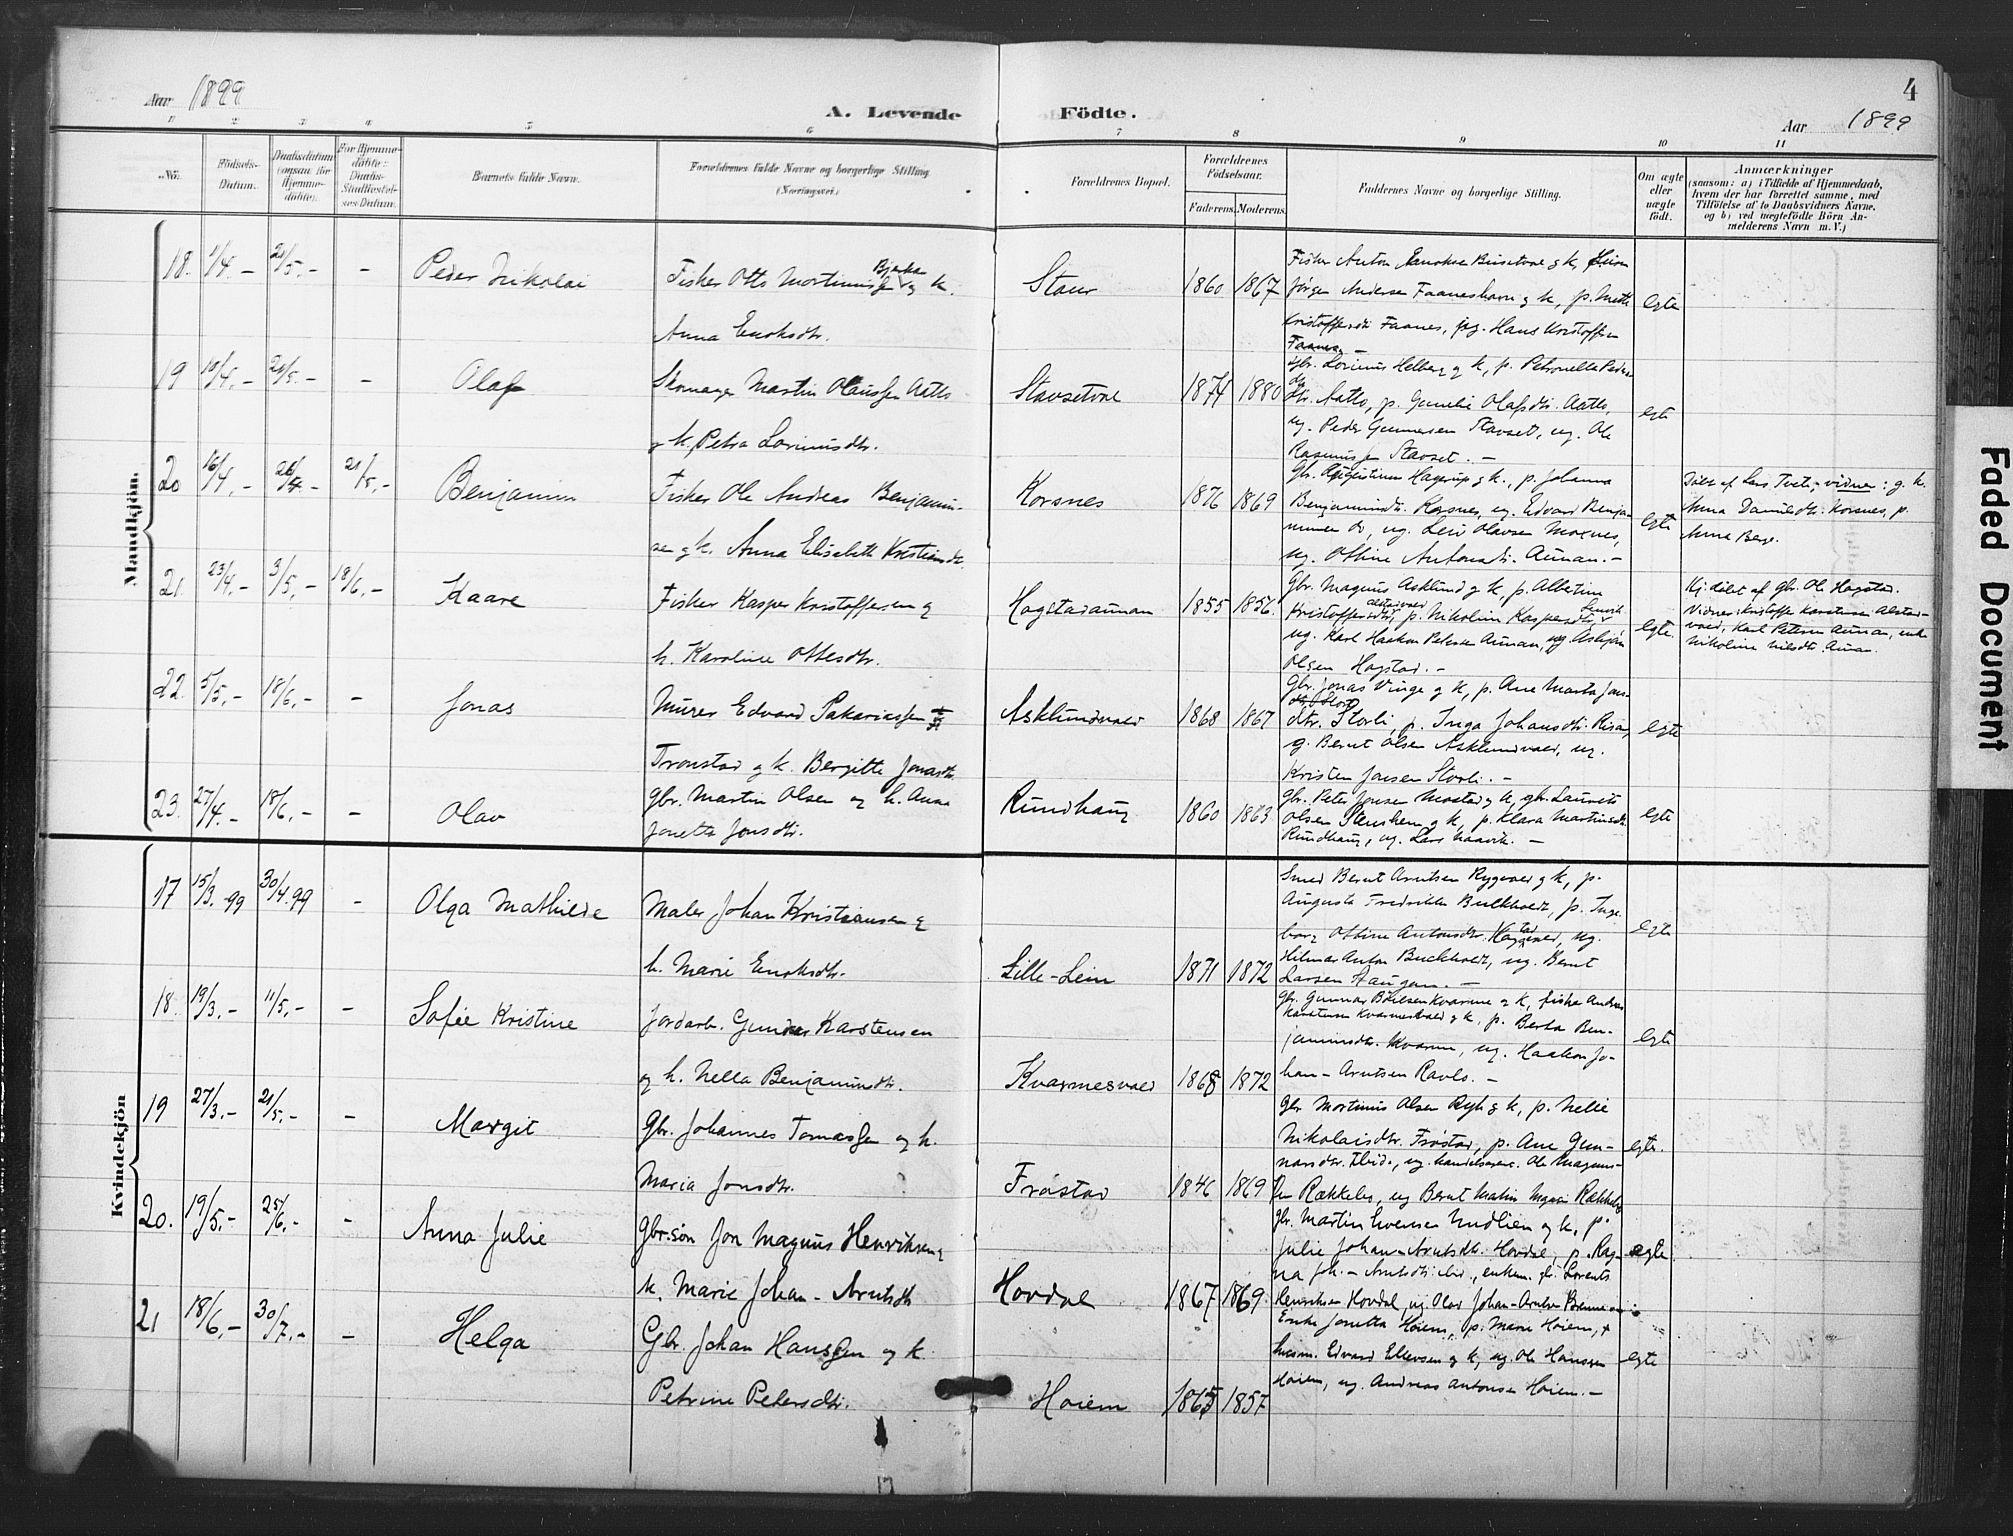 Aar 1899
A. Levende Födte.
4
Aar 1899
1 2 3 4 5 6 7 8 9 10 11
No. Födsels-Datum. Daabsdatum (ogsaa for Hjemmedöbte). For Hjemmedöbte: Daabs-Stadfæstelses-Datum. Barnets fulde Navn. Forældrenes fulde Navne og borgerlige Stilling (Næringsvei.) Forældrenes Bopæl. Forældrenes Födselsaar. Faderens. Moderens. Faddernes Navne og borgerlige Stilling. Om ægte eller uægte født. Anmærkninger
(saasom: a) i Tilfælde af Hjemmedaab, hvem der har forrettet samme, med Tilföielse af to Daabsvidners Navne, og b) ved uægtefödte Börn Anmelderens Navn m. V.)
Mandkjön.
18. 1/4.- 21/5.- - Peder Nikolai
Fisker Otto Mortinussen Bjerkan og k.
Anna Enoksdtr.
Staur 1860 1867
Fisker Anton
Jørgen Andersen Faaneshavn g k, p. Mette
Kristoffersdtr Faanes, ug. Hans Kristoffersen
Faanes.-
egte
19 10/4.- 21/5.- - Olaf
Skomager Martin Olaussen Aatlo
og k. Petra Lorinusdtr.
Stavsetvae 1874 1880
Gbr. Lorinus Helberg g k, p. Petronelle Peders
dtr. Aatlo, p. Gunelie Olafsdtr. Aatlo,
ug. Peder Gunnersen Stavset, ug. Ole
Rasmussen Stavset.-
egte
20 16/4.- 21/5.- Benjamin
Fisker Ole Andreas Benjamin-
sen g k. Anna Elisabeth Kristiansdtr.
Korsnes 1876 1869
Gbr. Augustinus Hagerup g k., p. Johanna
Benjaminsdtr. Korsnes, ug. Edvard Benja-
minsen do, ug. Leii Olavsen Moenes,
ug. Ottine Antonsdtr. Aunan.-
egte
Døbt af Lars Tvete, vidner: g. k.
Anna Danielsdtr. Korsnes, p.
Anna Berge.
21. 23/4.- 3/5.- 18/6.- Kaare
Fisker Kasper Kristoffersen g
h. Karoline Ottesdtr.
Hogstadaunan 1855 1856.
Gbr. Magnus Asklund g k, p. Albertine
Kristoffersdtr, p. Nikoline Kaspersdtr,
ug. Karl Haakon Petersen Aunan, ug Asbjørn
Olsen Hogstad.-
egte.
Hj. døbt af Gbr. Ole Hogstad.
Vidner: Kristoffer Karstensen Alstad-
vald, Karl Petersen Aunan, enk
Nikoline Nilsdtr. Aunan.
22. 5/5.- 18/6.- - Jonas
Murer Edvard Sakariassen
Tronstad g k. Bergitte Jonasdtr.
Asklundvald 1868 1867
Gbr. Jonas Vinge g k, p. Ane Marta Jons-
dtr. Storli, p. Inga Johansdtr. Risan,
g. Bernt Olsen Asklundvald, ug.
Kristen Jonsen Storli.-
egte
23. 27/4.- 18/6.- - Olav
Gbr. Martin Olsen og h. Anna
Jonetta Jonsdtr.
Rundhaug 1860 1863
Gbr. Peter Jonsen Mostad g k, gbr. Laurits
Olsen Stenshem g k, p. Klara Martinsdtr.
Rundhaug, ug. Lars Naavik.-
egte
Kvindekjön
17 15/3.99 30/4.99 - Olga Mathilde
Maler Johan Kristiansen g
h. Marie Enoksdtr.
Lille-Lein 1871 1872
Smed Bernt Arntsen Rygvold g k, p.
Augusta Fredrikke Bulkholdt, p. Inge-
borg Ottine Antonsdtr. Hagstad, ug.
Hilmar Anton Buckholdt, ug. Bernt
Larsen Haugan.-
egte
18. 19/3.- 11/5.- - Sofie Kristine
Jordarb. Gunder Karstensen
og h. Nella Benjaminsdtr.
Kvarmesvald 1868 1872
Gbr. Gunnar Børresen Kvarme g k, fisker Anders
Karstensen Kvarmesvald g k, p. Berta Ben-
jaminsdtr. Kvarme, ug. Haakon Jo-
han-Arntsen Ravlo.-
egte
19 27/3.- 21/5.- - Margit
Gbr. Johannes Tomassen og h.
Maria Jonsdtr.
Frøstad 1846 1869
Gbr. Mortinus Olsen Ryh g k, p. Nelie
Nikolaisdtr. Frøstad, p. Ane Gun-
narsdtr. ibid., ug. handelsagent. Ole Magnus-
sen Rækkebo, ug Bernt Rækkebo
egte.
20. 19/5.- 25/6.- - Anna Julie
Gbr.søn Jon Magnus Henriksen g
k. Marie Johan-Arntsdtr
Hovdal 1867 1869.
gbr. Martin Iversen Undlien g k, p.
Julie Johan-Arntsdtr. Hovdal, p. Rag-
na Joh.-Arntsdtr ibid., enkem. gbr. Lorents
Henriksen Hovdal, ug. Olav Johan-Arntsen
egte
21 18/6.- 30/7.- - Helga
Gbr. Johan Hanssen og k.
Petrine Petersdtr.
Hoiem 1865 1857.
Enke Jonetta Hoiem, p. Marie Hoiem, +
husm. Edvard Ellevsen g k, ug. Ole Hanssen
Hoiem, ug. Andreas Antonsen Hoiem.-
egte
Faded Document